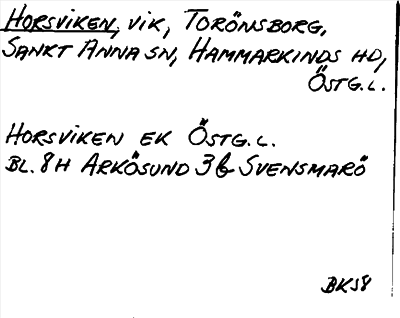 HORSVIKEN, VIK, TORÖNSBORG,
SANKT ANNA SN, HAMMARKINDS HD,
ÖSTG.L.
HORSVIKEN EK ÖSTG.L.
BL. 8H ARKÖSUND 3b SVENSMARÖ
BKS8